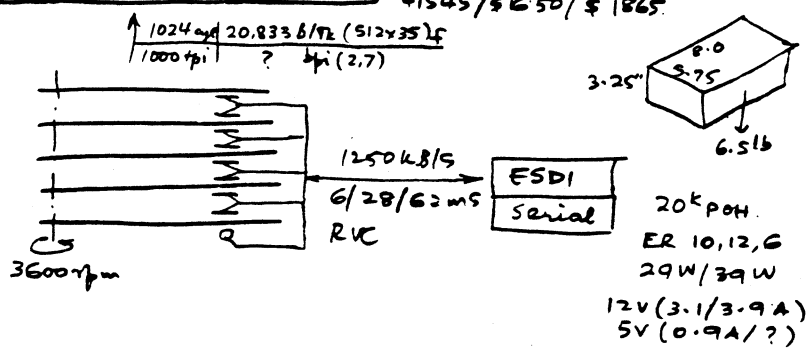 $1545/$1650/$1865.
1024 cyl 20,833 b/Tk (512x35)f
1000 tpi ? bpi (2,7)
8.0
5.75
3.25"
6.5 lb
1250 kB/s
6/28/62 ms
RVC
ESDI
Serial
3600 rpm
20K POH.
ER 10,12,6
29W/39W
12V (3.1/3.9A)
5V (0.9A/?)